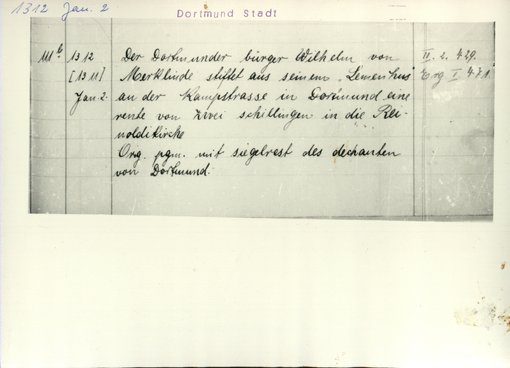 1312 Jan. 2
Dortmund Stadt
111b 1312 Der Dortmunder bürger Wilhelm von II. 2. 429.
[1311] Merklinde stiftet aus seinem "Lemenhus" Erg I 471
Jan 2. an der Kampstrasse in Dortmund eine
rente von zwei schillingen in die Rei-
noldikirche
Org. pgm. mit siegelrest des dechanten
von Dortmund.